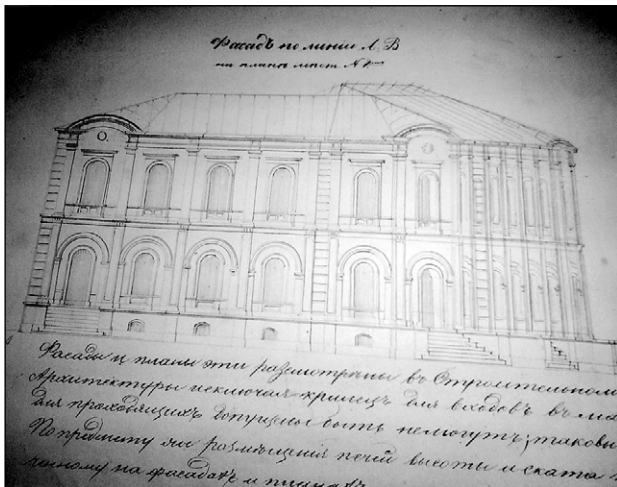 Фасадъ по линіи А, В
на планѣ лист. №
Фасады и планы эти разсмотрѣны въ Строительномъ
Архитектуры исключая крилецъ для входовъ въ
для проходящихъ допущены быть немогутъ; таковы
По предмету же размѣщенія печей высоты и ската
на фасадахъ и планахъ